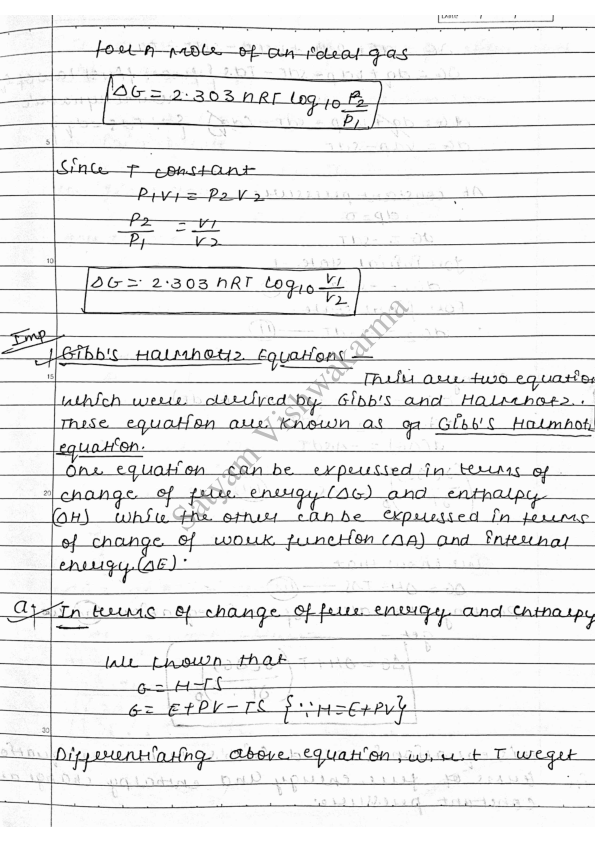 for n mole of an ideal gas
ΔG = 2.303 nRT log10 P2/P1
5
Since T constant
P1V1 = P2V2
P2/P1 = V1/V2
10
ΔG = 2.303 nRT log10 V1/V2
Imp
Gibb's Halmhotz Equations –
15
Theis are two equation
which were derived by Gibb's and Halmhotz.
These equation are known as Gibb's Halmhot
equation.
One equation can be expressed in terms of
20
change of free energy (ΔG) and enthalpy
(ΔH) while the other can be expressed in terms
of change of work function (ΔA) and internal
energy (ΔE).
a) In terms of change of free energy and enthalpy
We known that
G = H-TS
G = E+PV-TS {∵H=E+PV}
30
Differentiating above equation, w.r.t T we get
Satyam Vishwakarma